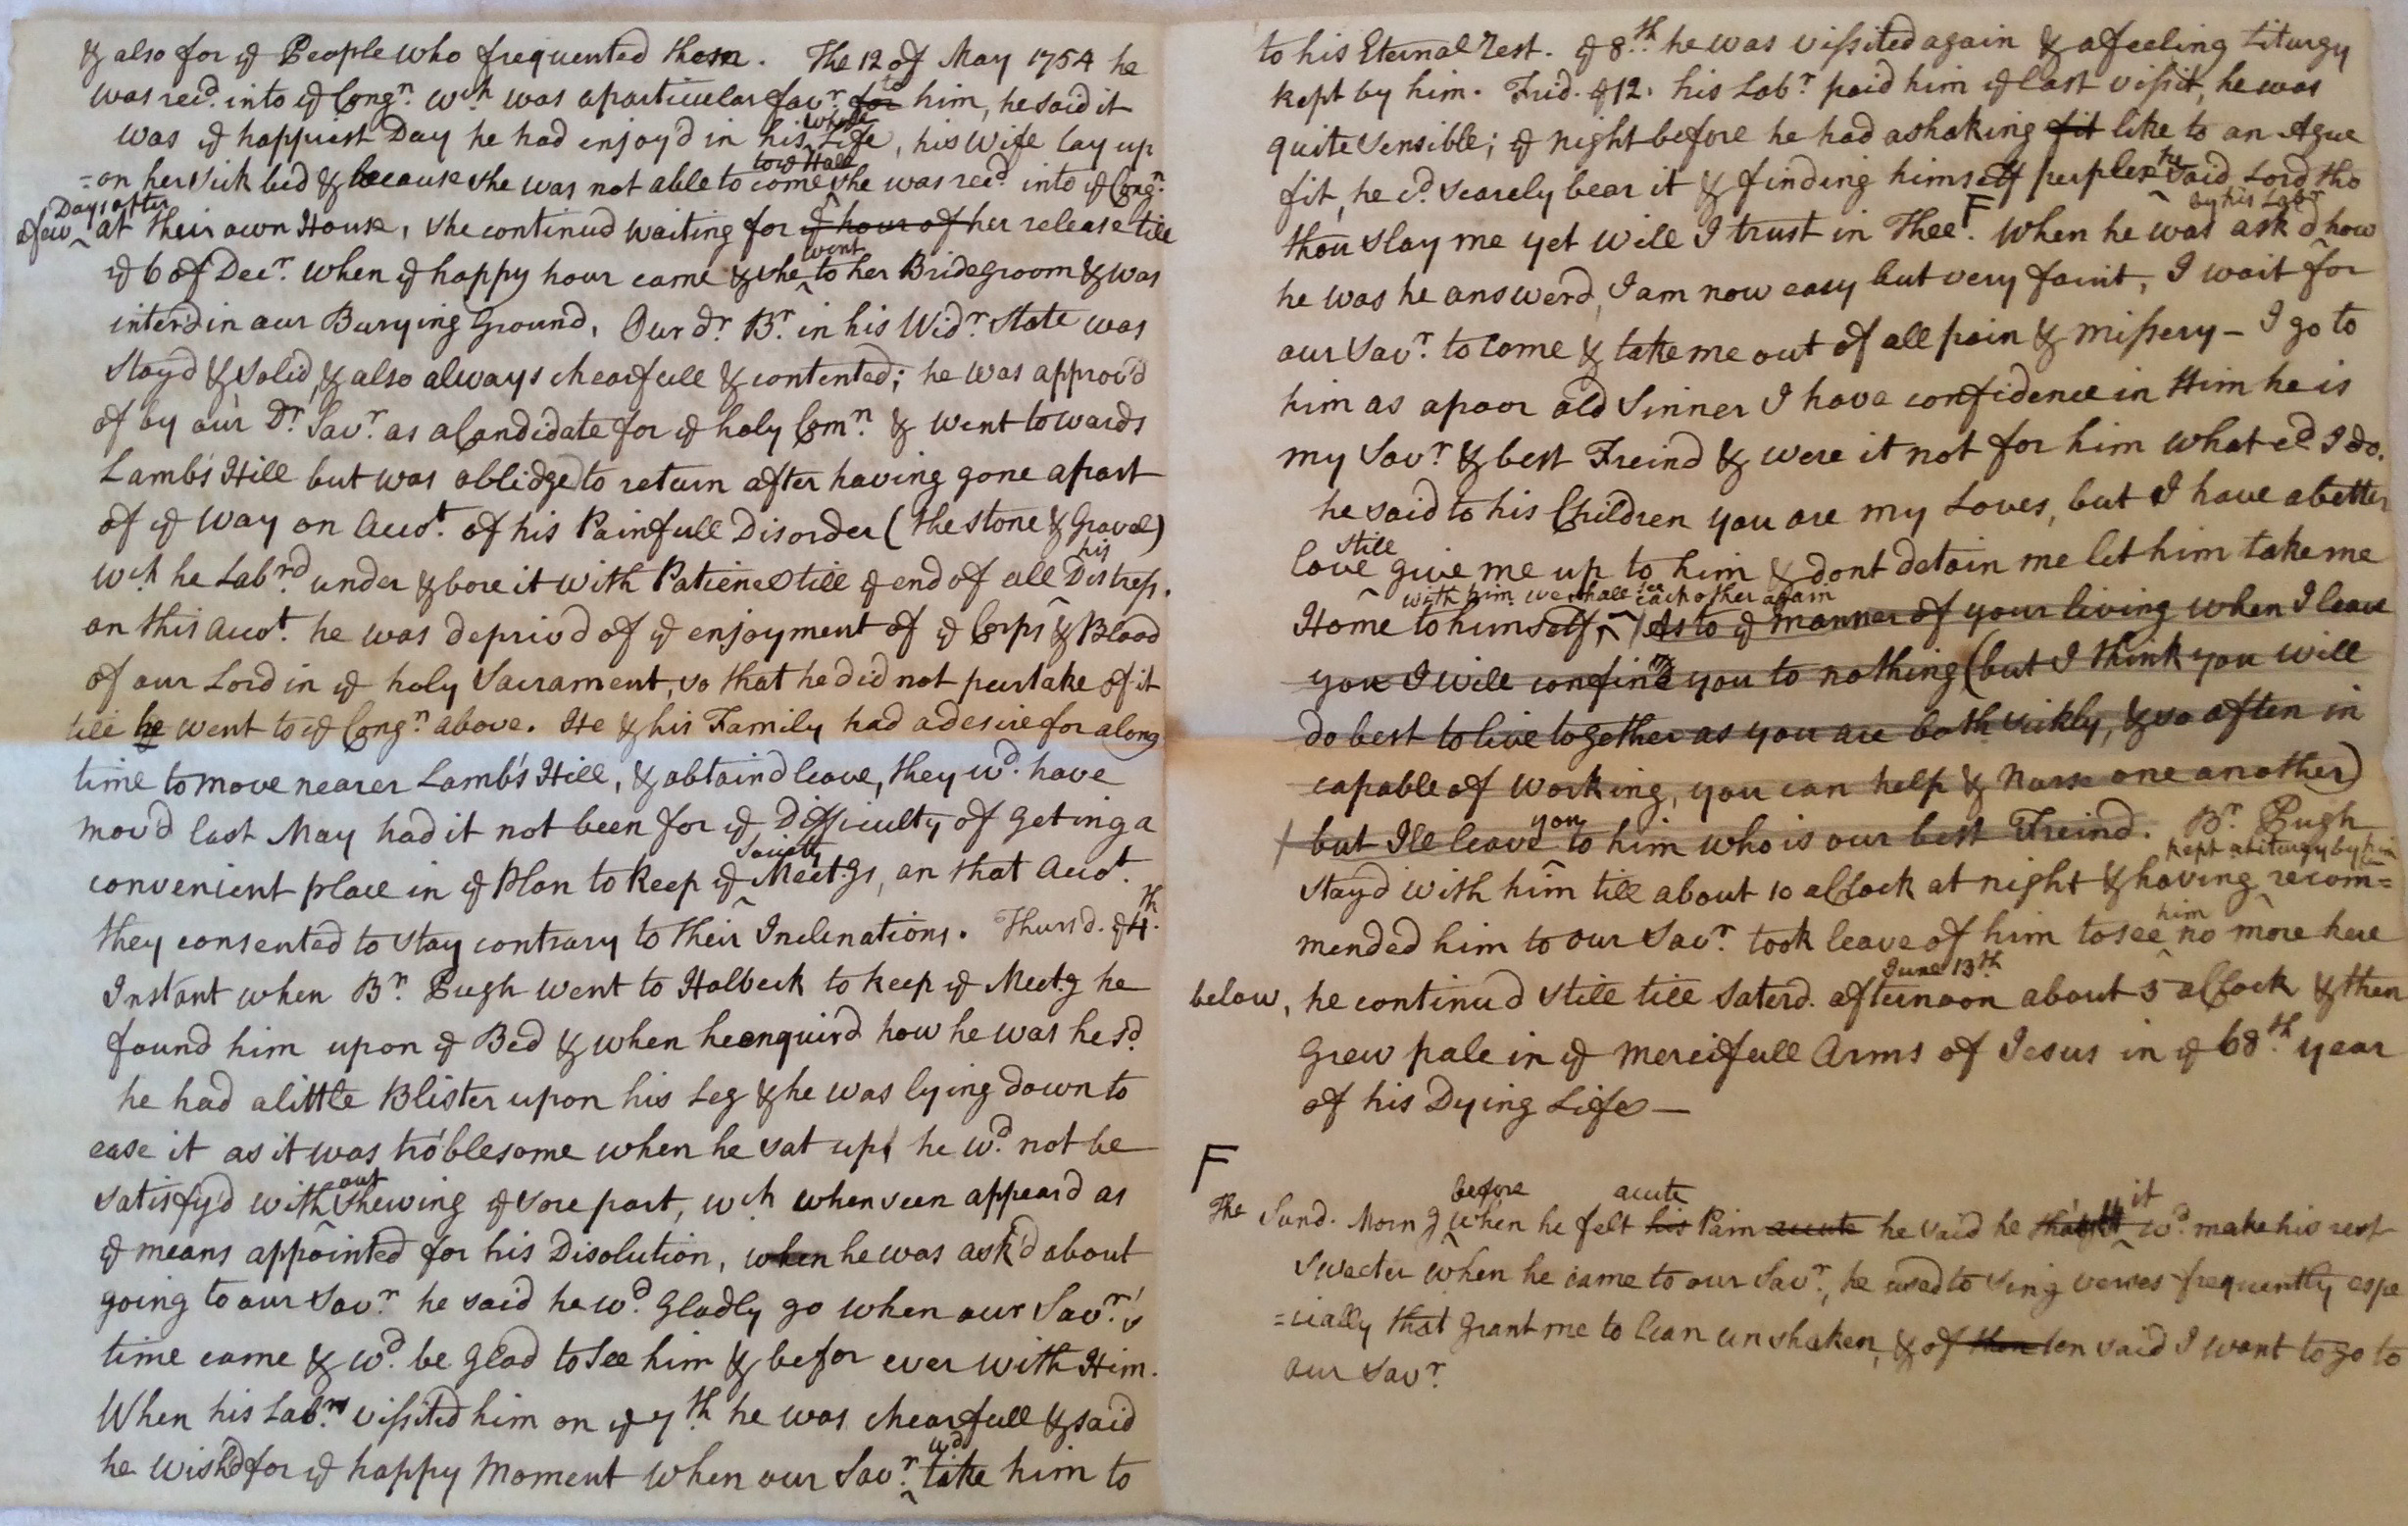 & also for ye People who frequented them. The 12 of May 1754 he
was recd. into ye Congn. wch was a particular favr. for to him, he said it
was ye happiest Day he had enjoy'd in his whole Life, his Wife lay up
=on her sick bed & because she was not able to come to ye Hall she was recd. into ye Congn.
a few Days after at their own House, she continud waiting for ye hour of her release till
ye 6 of Decr. when ye happy hour came & she went to her Bridegroom & was
inter'd in our Burying Ground. Our dr. Br. in his Widr. State was
stay'd & solid, & also always chearfull & contented; he was approv'd
of by our Dr. Savr. as a Candidate for ye holy Comn. & went towards
Lamb's Hill but was oblidged to return after having gone a part
of ye way on Accot. of his Painfull Disorder (the stone & Gravel)
wch he Labrd under & bore it with Patience till ye end of all his Distress.
on this Accot. he was deprivd of ye enjoyment of ye Corps & Blood
of our Lord in ye holy Sacrament, so that he did not partake of it
till he went to ye Congn above. He & his Family had a desire for a long
time to move nearer Lamb's Hill, & obtaind leave, they wd. have
mov'd last May had it not been for ye Difficulty of geting a
convenient place in ye Plan to keep ye Society Meetgs, on that Accot.
they consented to stay contrary to their Inclinations. Thursd. ye 4th.
Instant when Br. Pugh went to Holbeck to keep ye Meetg he
found him upon ye Bed & when he enquird how he was he sd.
he had a little Blister upon his Leg & he was lying down to
ease it as it was tro'blesome when he sat up, he wd. not be
satisfy'd without shewing ye sore part, wch when seen appear'd as
ye means appointed for his Disolution, when he was ask'd about
going to our Savr. he said he wd. Gladly go when our Savr.'s
time came & wd. be glad to see him & be for ever with Him.
When his Labrs. vissited him on ye 7th he was chearfull & said
he wish'd for ye happy Moment when our Savr. wd. take him to
to his Eternal Rest. ye 8th. he was vissited again & a feeling Liturgy
kept by him. Frid. ye 12. his Labr. paid him ye last vissit, he was
quite sensible; ye night before he had a shaking fit like to an Ague
fit, he cd. scarely bear it & finding himself perplex he said Lord tho
thou slay me yet will I trust in Thee F. When he was ask'd by his Labr how
he was he answerd, I am now easy but very faint, I wait for
our Savr. to come & take me out of all pain & missery – I go to
him as a poor old Sinner I have confidence in Him he is
my Savr. & best Freind & were it not for him what cd I do.
he said to his Children you are my Loves, but I have a better
love still give me up to him & dont detain me let him take me
Home to himself, with him we shall see each other again / As to ye manner of your living when I leave
you I will confine you to nothing (but I think you will
do best to live together as you are both sickly, & so often in
capable of working, you can help & Nurse one another)
/ but Ile leave you to him who is our best Freind. Br. Pugh
stay'd with him till about 10 a Clock at night & having kept a liturgy by him recom=
mended him to our Savr. took leave of him to see him no more here
below, he continud still till Saterd. afternoon June 13th about 5 a Clock & then
Grew pale in ye mercifull Arms of Jesus in ye 68th. year
of his Dying Life —
F
The Sund. Morng before when he felt his acute Pain acute he said he it wd. make his rest
sweeter when he came to our Savr., he used to sing verses frequently espe
=cially that Grant me to lean unshaken, & of ten said I want to go to
our Savr.